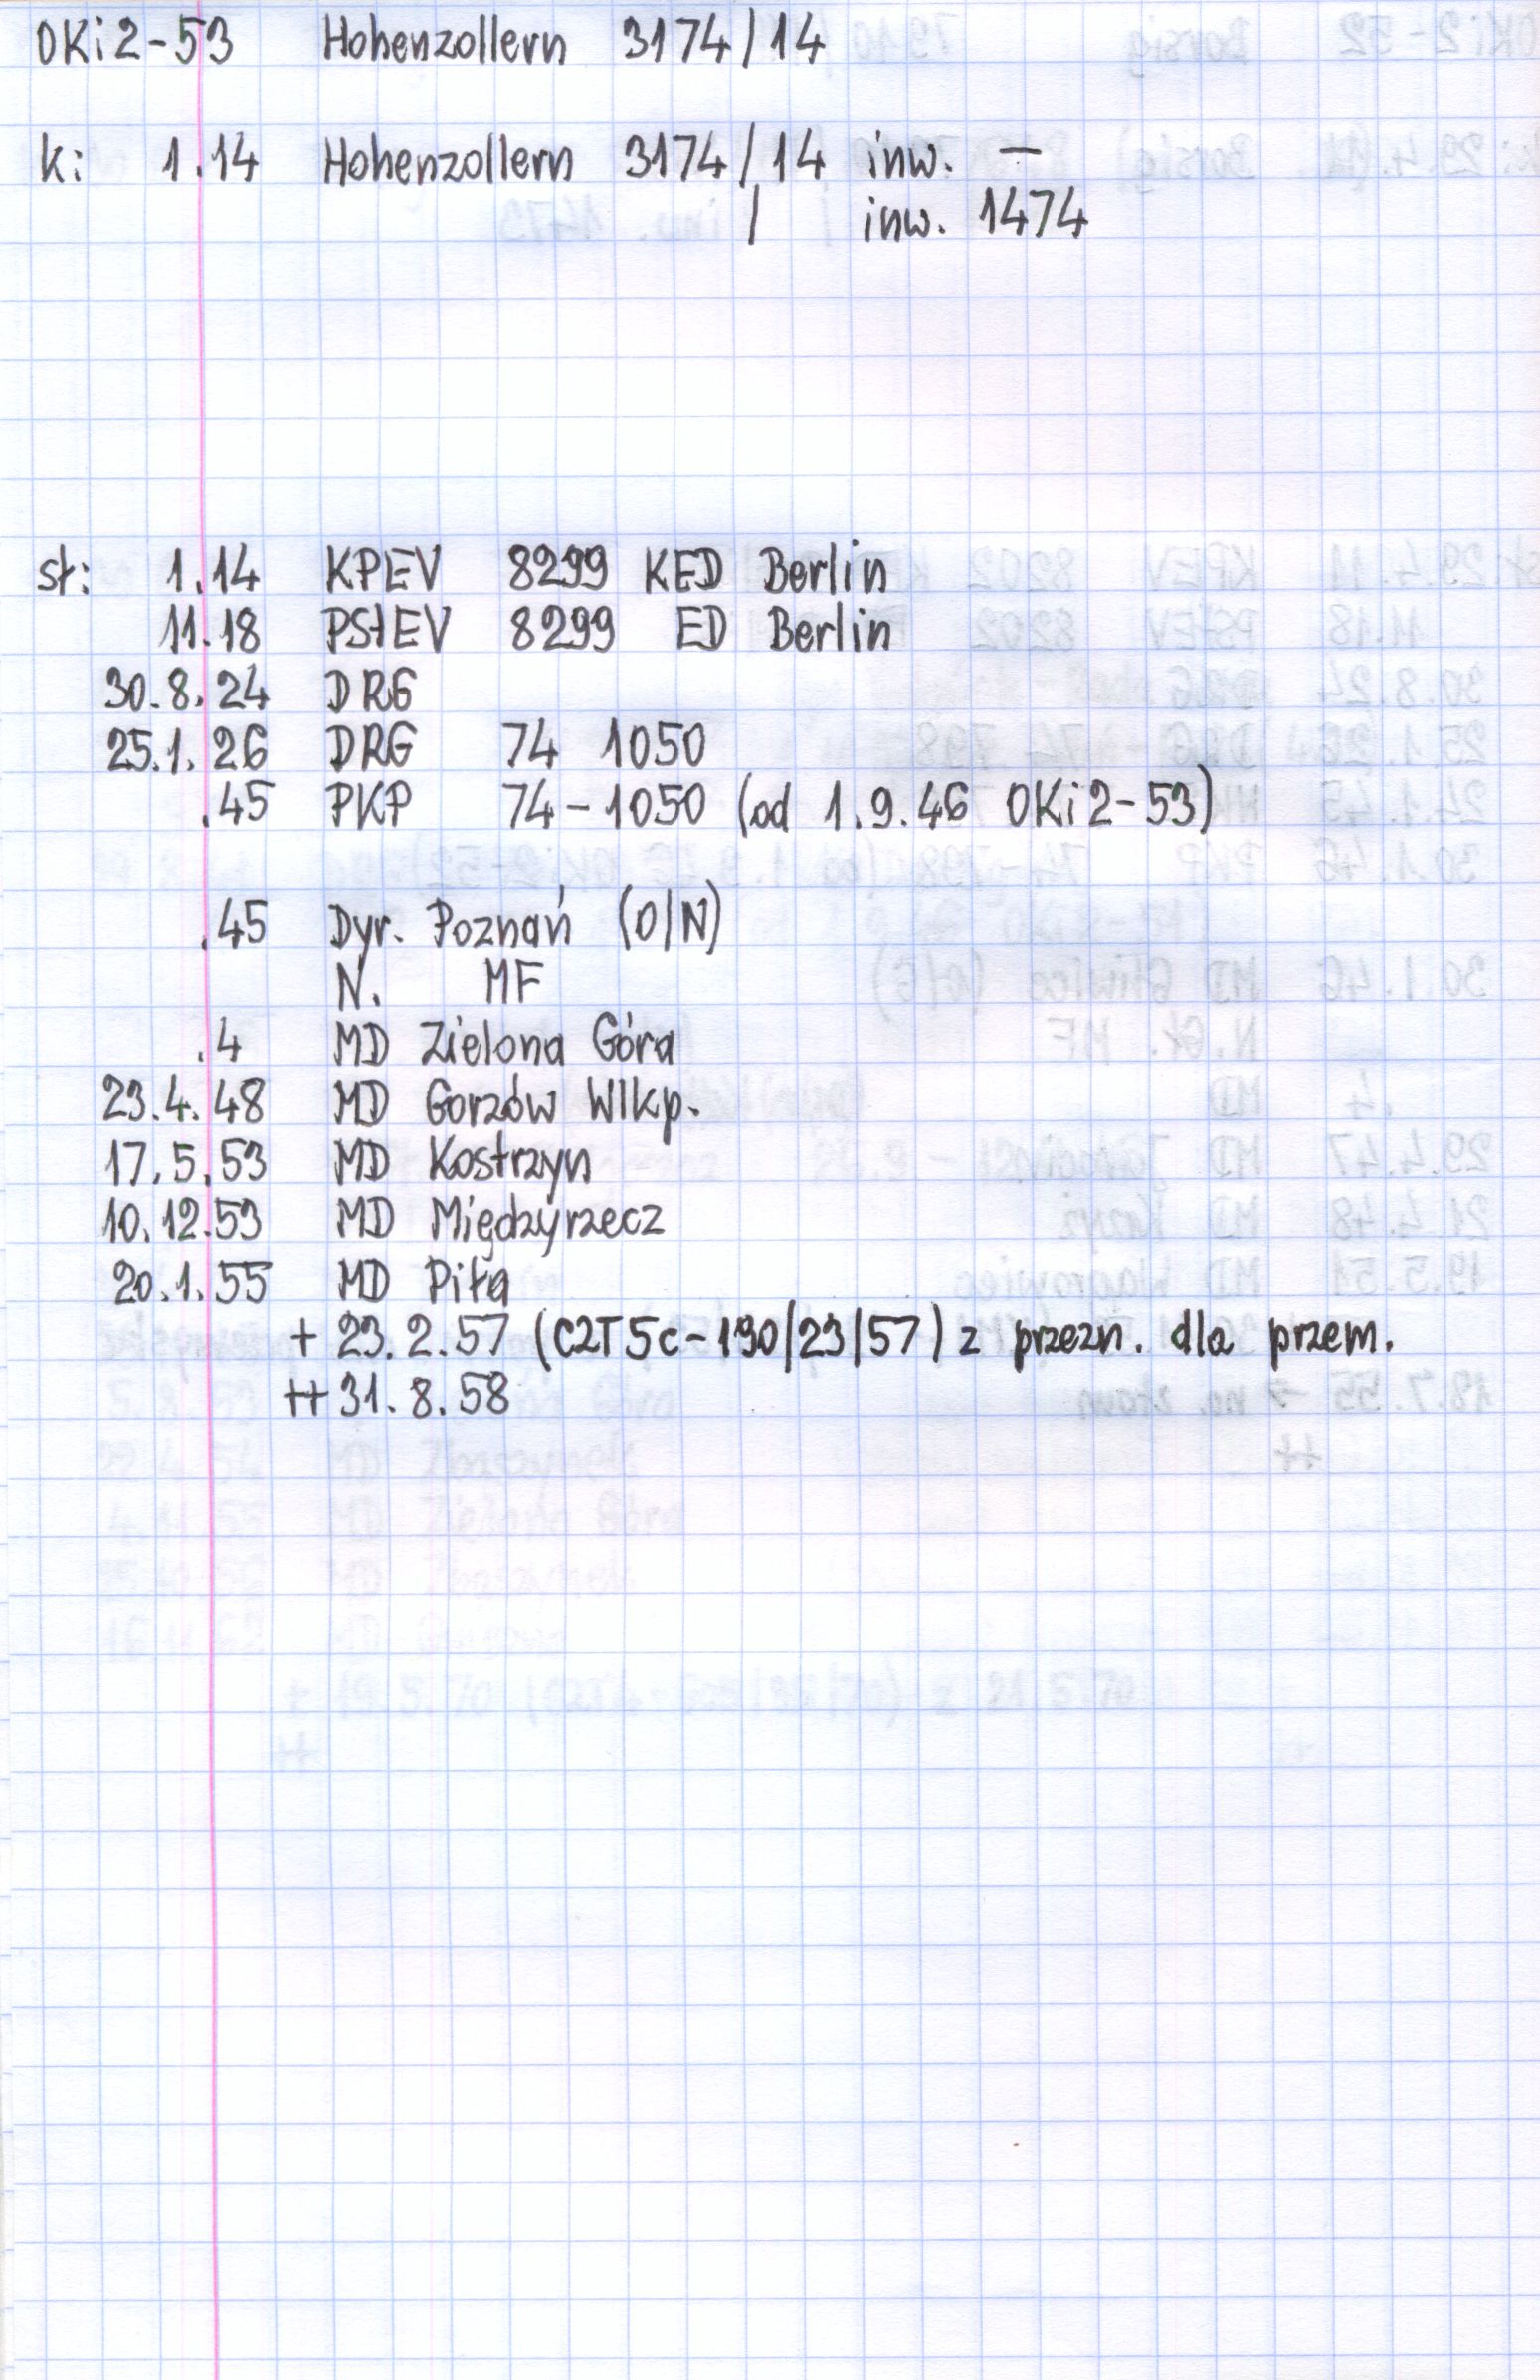 OKi2-53 Hohenzollern 3174/14
k: 1.14 Hohenzollern 3174/14 inw. —
/ inw. 1474
st: 1.14 KPEV 8299 KED Berlin
11.18 PStEV 8299 ED Berlin
30.8.24 DRG
25.1.26 DRG 74 1050
.45 PKP 74-1050 (od 1.9.46 OKi2-53)
.45 Dyr. Poznań (O/N)
N. MF
.4 MD Zielona Góra
23.4.48 MD Gorzów Wlkp.
17.5.53 MD Kostrzyn
10.12.53 MD Międzyrzecz
20.1.55 MD Piła
+ 23.2.57 (C2T5c-190/23/57) z przezn. dla przem.
++ 31.8.58